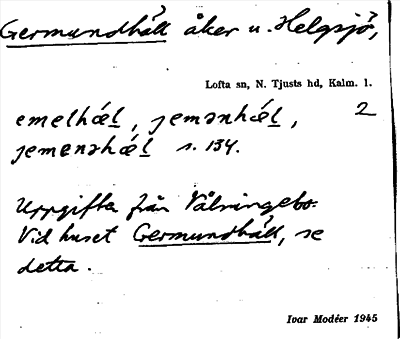 Germundhäll åker u. Helgsjö,
Lofta sn, N. Tjusts hd, Kalm. l.
emelhǽl, jemənhǽl, 2
jemenəhǽl s. 134.
Uppgifta från Vålsringebo:
Vid huset Germundhäll, se
detta.
Ivar Modéer 1945